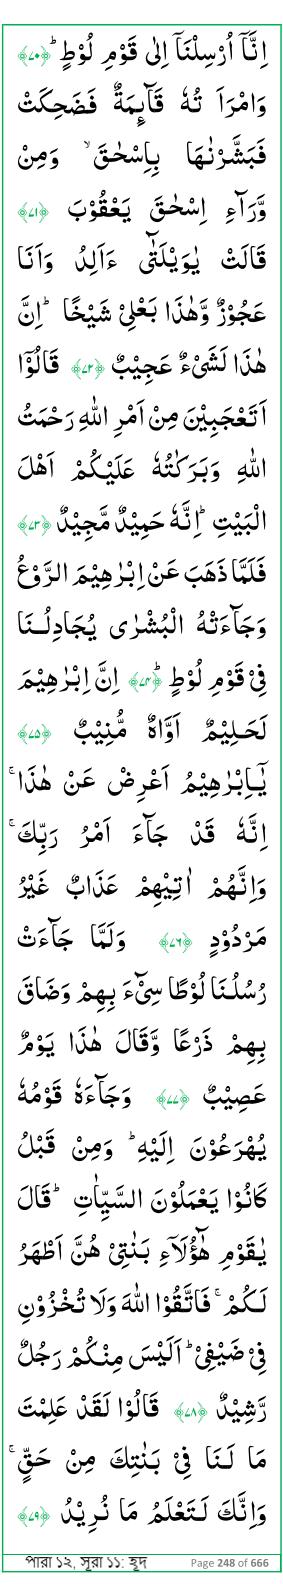 اِنَّاۤ اُرْسِلْنَاۤ اِلٰى قَوْمِ لُوْطٍ ؕ ﴿۷۰﴾
وَامْرَاَ تُهٗ قَآىِٕمَةٌ فَضَحِكَتْ
فَبَشَّرْنٰهَا بِاِسْحٰقَ ۙ وَمِنْ
وَّرَآءِ اِسْحٰقَ يَعْقُوْبَ ﴿۷۱﴾
قَالَتْ يٰوَيْلَتٰٓى ءَاَلِدُ وَاَنَا
عَجُوْزٌ وَّهٰذَا بَعْلِىْ شَيْخًا ؕ اِنَّ
هٰذَا لَشَىْءٌ عَجِيْبٌ ﴿۷۲﴾ قَالُوْٓا
اَتَعْجَبِيْنَ مِنْ اَمْرِ اللّٰهِ رَحْمَتُ
اللّٰهِ وَبَرَكٰتُهٗ عَلَيْكُمْ اَهْلَ
الْبَيْتِ ؕ اِنَّهٗ حَمِيْدٌ مَّجِيْدٌ ﴿۷۳﴾
فَلَمَّا ذَهَبَ عَنْ اِبْرٰهِيْمَ الرَّوْعُ
وَجَآءَتْهُ الْبُشْرٰى يُجَادِلُـنَا
فِىْ قَوْمِ لُوْطٍ ؕ ﴿۷۴﴾ اِنَّ اِبْرٰهِيْمَ
لَحَـلِيْمٌ اَوَّاهٌ مُّنِيْبٌ ﴿۷۵﴾
يٰۤـاِبْرٰهِيْمُ اَعْرِضْ عَنْ هٰذَا ۚ
اِنَّهٗ قَدْ جَآءَ اَمْرُ رَبِّكَ ۚ
وَاِنَّهُمْ اٰتِيْهِمْ عَذَابٌ غَيْرُ
مَرْدُوْدٍ ﴿۷۶﴾ وَلَمَّا جَآءَتْ
رُسُلُـنَا لُوْطًا سِىْٓءَ بِهِمْ وَضَاقَ
بِهِمْ ذَرْعًا وَّقَالَ هٰذَا يَوْمٌ
عَصِيْبٌ ﴿۷۷﴾ وَجَآءَهٗ قَوْمُهٗ
يُهْرَعُوْنَ اِلَيْهِ ؕ وَمِنْ قَبْلُ
كَانُوْا يَعْمَلُوْنَ السَّيِّاٰتِ ؕ قَالَ
يٰقَوْمِ هٰٓؤُلَآءِ بَنٰتِىْ هُنَّ اَطْهَرُ
لَـكُمْ ۚ فَاتَّقُوْا اللّٰهَ وَلَا تُخْزُوْنِ
فِىْ ضَيْفِىْ ؕ اَلَيْسَ مِنْكُمْ رَجُلٌ
رَّشِيْدٌ ﴿۷۸﴾ قَالُوْا لَقَدْ عَلِمْتَ
مَا لَـنَا فِىْ بَنٰتِكَ مِنْ حَقٍّ ۚ
وَاِنَّكَ لَـتَعْلَمُ مَا نُرِيْدُ ﴿۷۹﴾
পারা ১২, সূরা ১১: হূদ Page 248 of 666